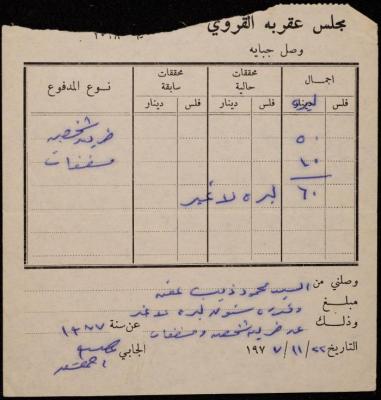 مجلس عقربه القروي
وصل جبايه
نوع المدفوع محققات سابقة محققات حالية اجمال
دينار فلس دينار فلس دينار فلس
ليره
ضريبة شخصية ٥٠
مسقفات ١٠
٦٠ ليره لا غير
وصلني من السيد محمود ذيب
مبلغ وقدره ستون ليره لا غير
وذلك عن ضريبة شخصية ومسقفات عن سنة ١٩٧٧
التاريخ ٢٢/ ١١/ ١٩٧٧ الجابي